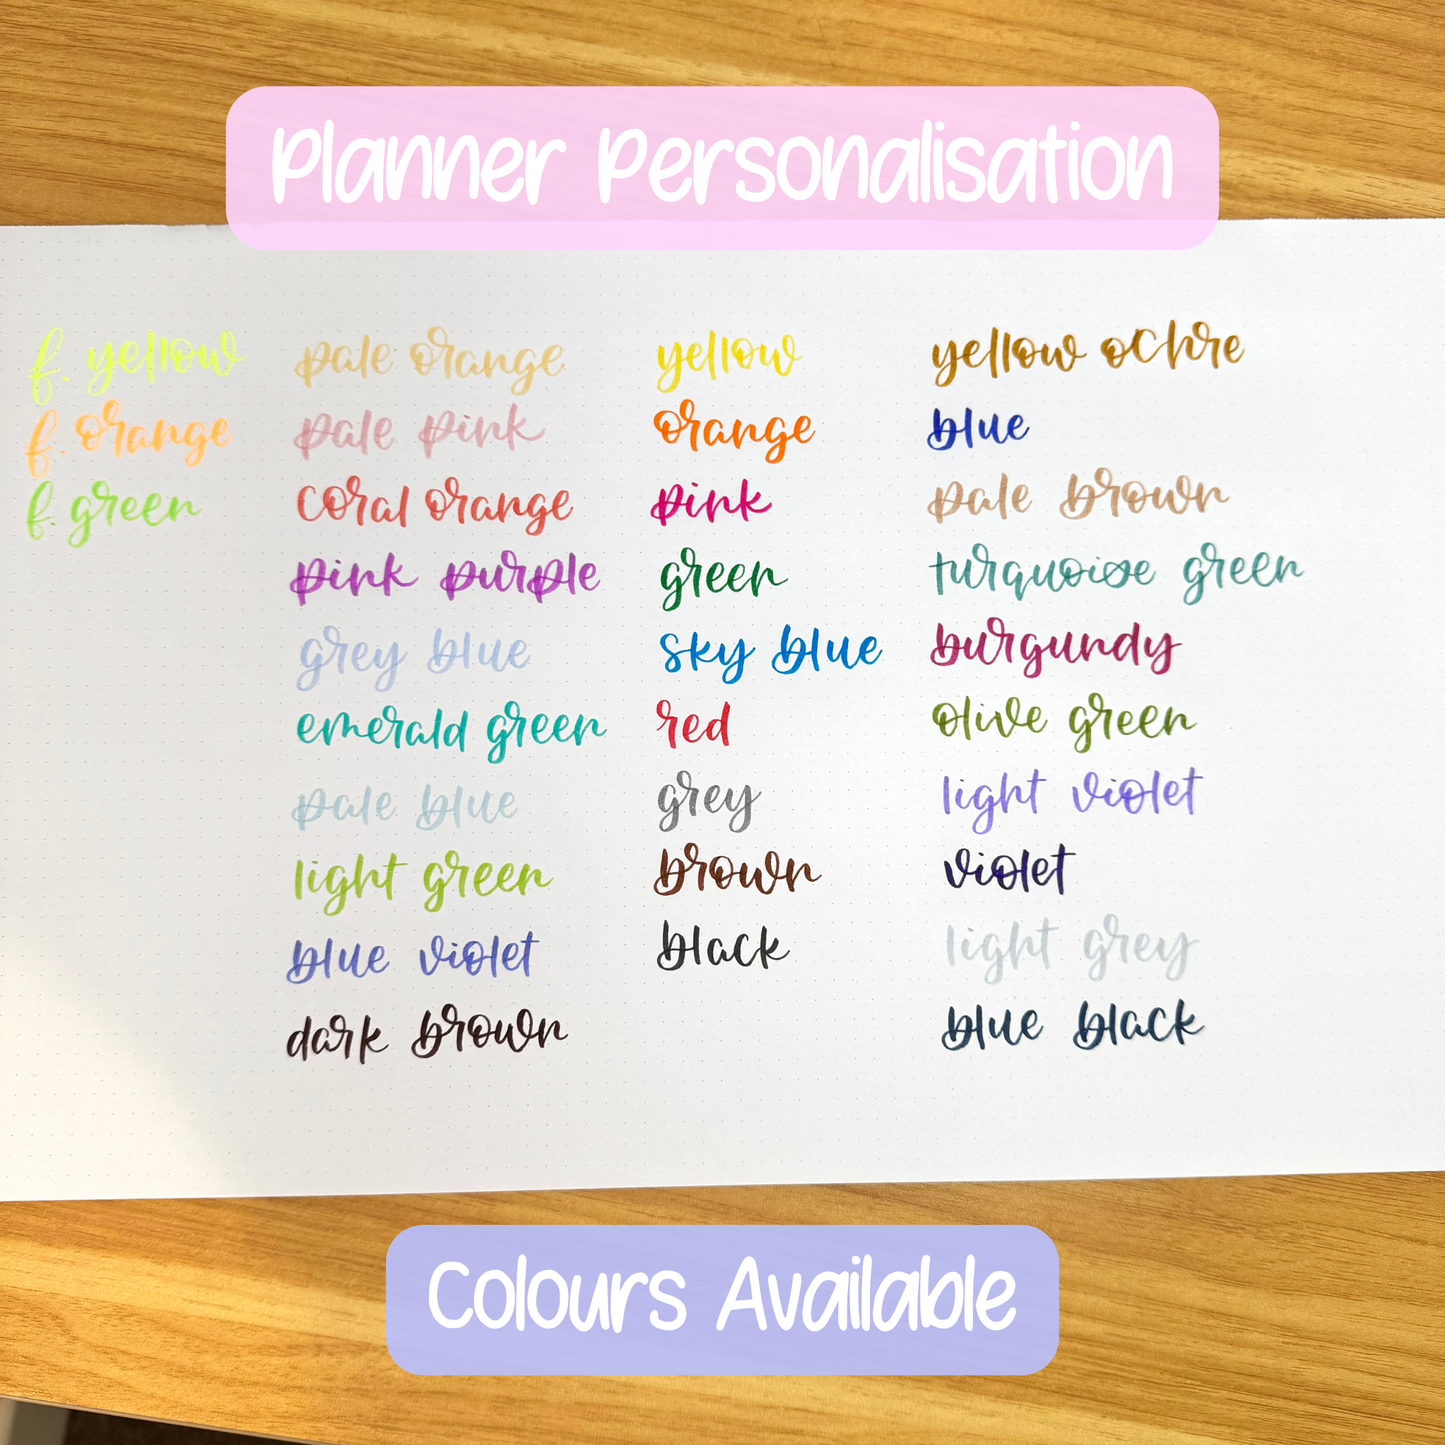 Planner Personalisation
f. yellow
f. orange
f. green
pale orange
pale pink
coral orange
pink purple
grey blue
emerald green
pale blue
light green
blue violet
dark brown
yellow
orange
pink
green
sky blue
red
grey
brown
black
yellow ochre
blue
pale brown
turquoise green
burgundy
olive green
light violet
violet
light grey
blue black
Colours Available